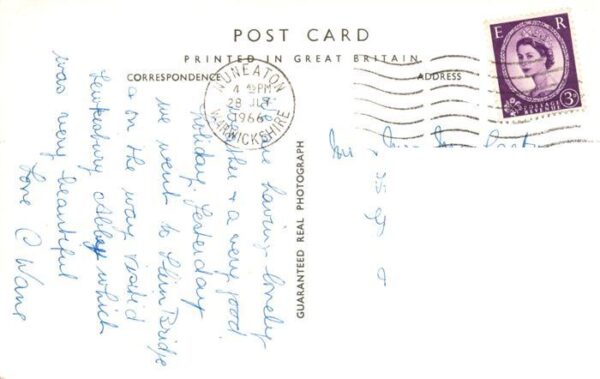 POST CARD
PRINTED IN GREAT BRITAIN
CORRESPONDENCE
ADDRESS
E R
POSTAGE REVENUE
3D
NUNEATON
PM
28 JLY
1966
WARWICKSHIRE
GUARANTEED REAL PHOTOGRAPH
are having lovely
weather & a very good
holiday. Yesterday
we went to Slim Bridge
& on the way visited
Tewkesbury Abbey which
was very beautiful
Love C